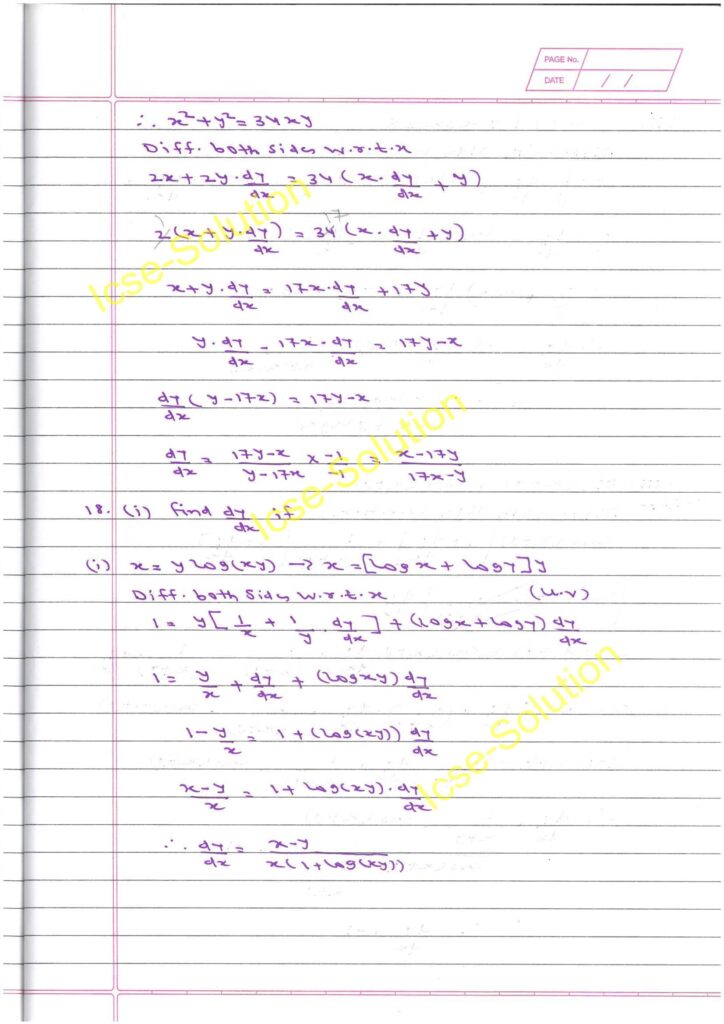 PAGE No.
DATE / /
∴ x²+y²=34xy
Diff. both sides w.r.t.x
2x+2y.dy/dx = 34(x.dy/dx + y)
2(x+y.dy/dx) = 34 17 (x.dy/dx +y)
x+y.dy/dx = 17x.dy/dx +17y
y.dy/dx - 17x.dy/dx = 17y-x
dy/dx(y-17x) = 17y-x
dy/dx = 17y-x/y-17x x -1/-1 = x-17y/17x-y
18. (i) find dy/dx if
(i) x= y log(xy) → x=[logx+logy]y
Diff. both sides w.r.t.x (u.v)
1= y[1/x + 1/y.dy/dx]+(logx+logy)dy/dx
1= y/x + dy/dx + (logxy)dy/dx
1-y/x = 1+(log(xy))dy/dx
x-y/x = 1+log(xy).dy/dx
∴ dy/dx = x-y/x(1+log(xy))
Icse-Solution
Icse-Solution
Icse-Solution